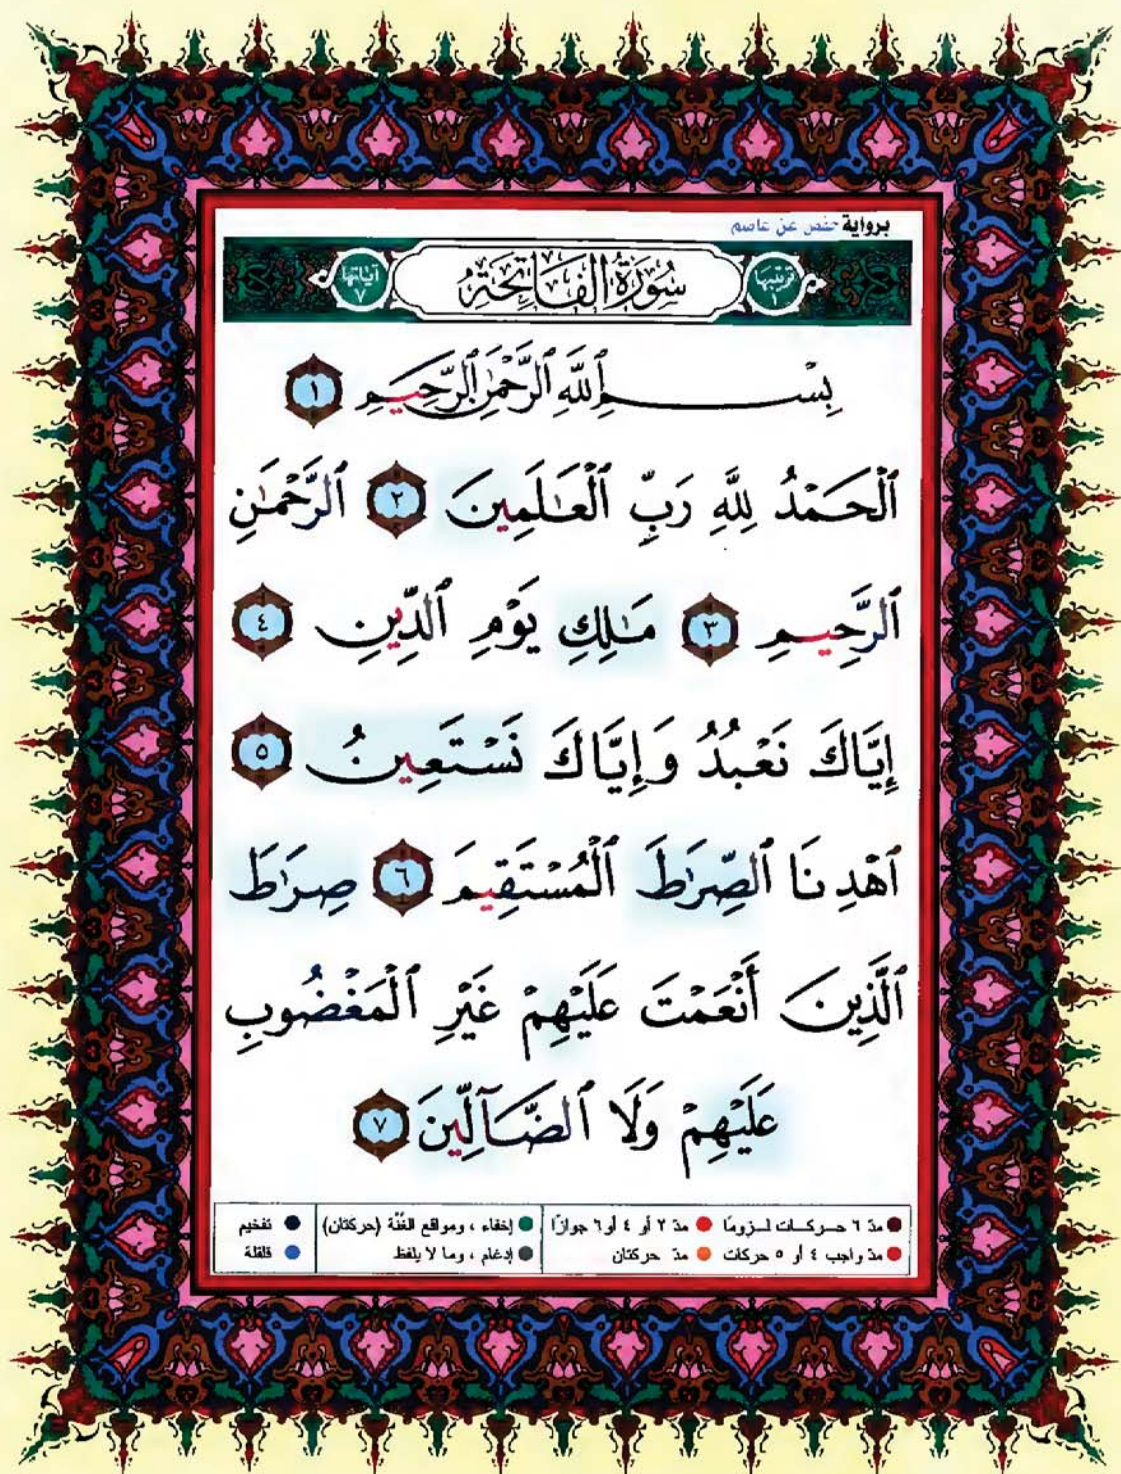 برواية حفص عن عاصم
ترتيبها ١
سُورَةُ الْفَاتِحَةِ
آياتها ٧
بِسْمِ ٱللَّهِ ٱلرَّحْمَٰنِ ٱلرَّحِيمِ ١
ٱلْحَمْدُ لِلَّهِ رَبِّ ٱلْعَٰلَمِينَ ٢ ٱلرَّحْمَٰنِ
ٱلرَّحِيمِ ٣ مَٰلِكِ يَوْمِ ٱلدِّينِ ٤
إِيَّاكَ نَعْبُدُ وَإِيَّاكَ نَسْتَعِينُ ٥
ٱهْدِنَا ٱلصِّرَٰطَ ٱلْمُسْتَقِيمَ ٦ صِرَٰطَ
ٱلَّذِينَ أَنْعَمْتَ عَلَيْهِمْ غَيْرِ ٱلْمَغْضُوبِ
عَلَيْهِمْ وَلَا ٱلضَّآلِّينَ ٧
مدّ ٦ حركات لزومًا مدّ ٢ أو ٤ أو ٦ جوازًا إخفاء ، ومواقع الغُنَّة (حركتان) تفخيم
مدّ واجب ٤ أو ٥ حركات مدّ حركتان إدغام ، وما لا يلفظ قلقلة